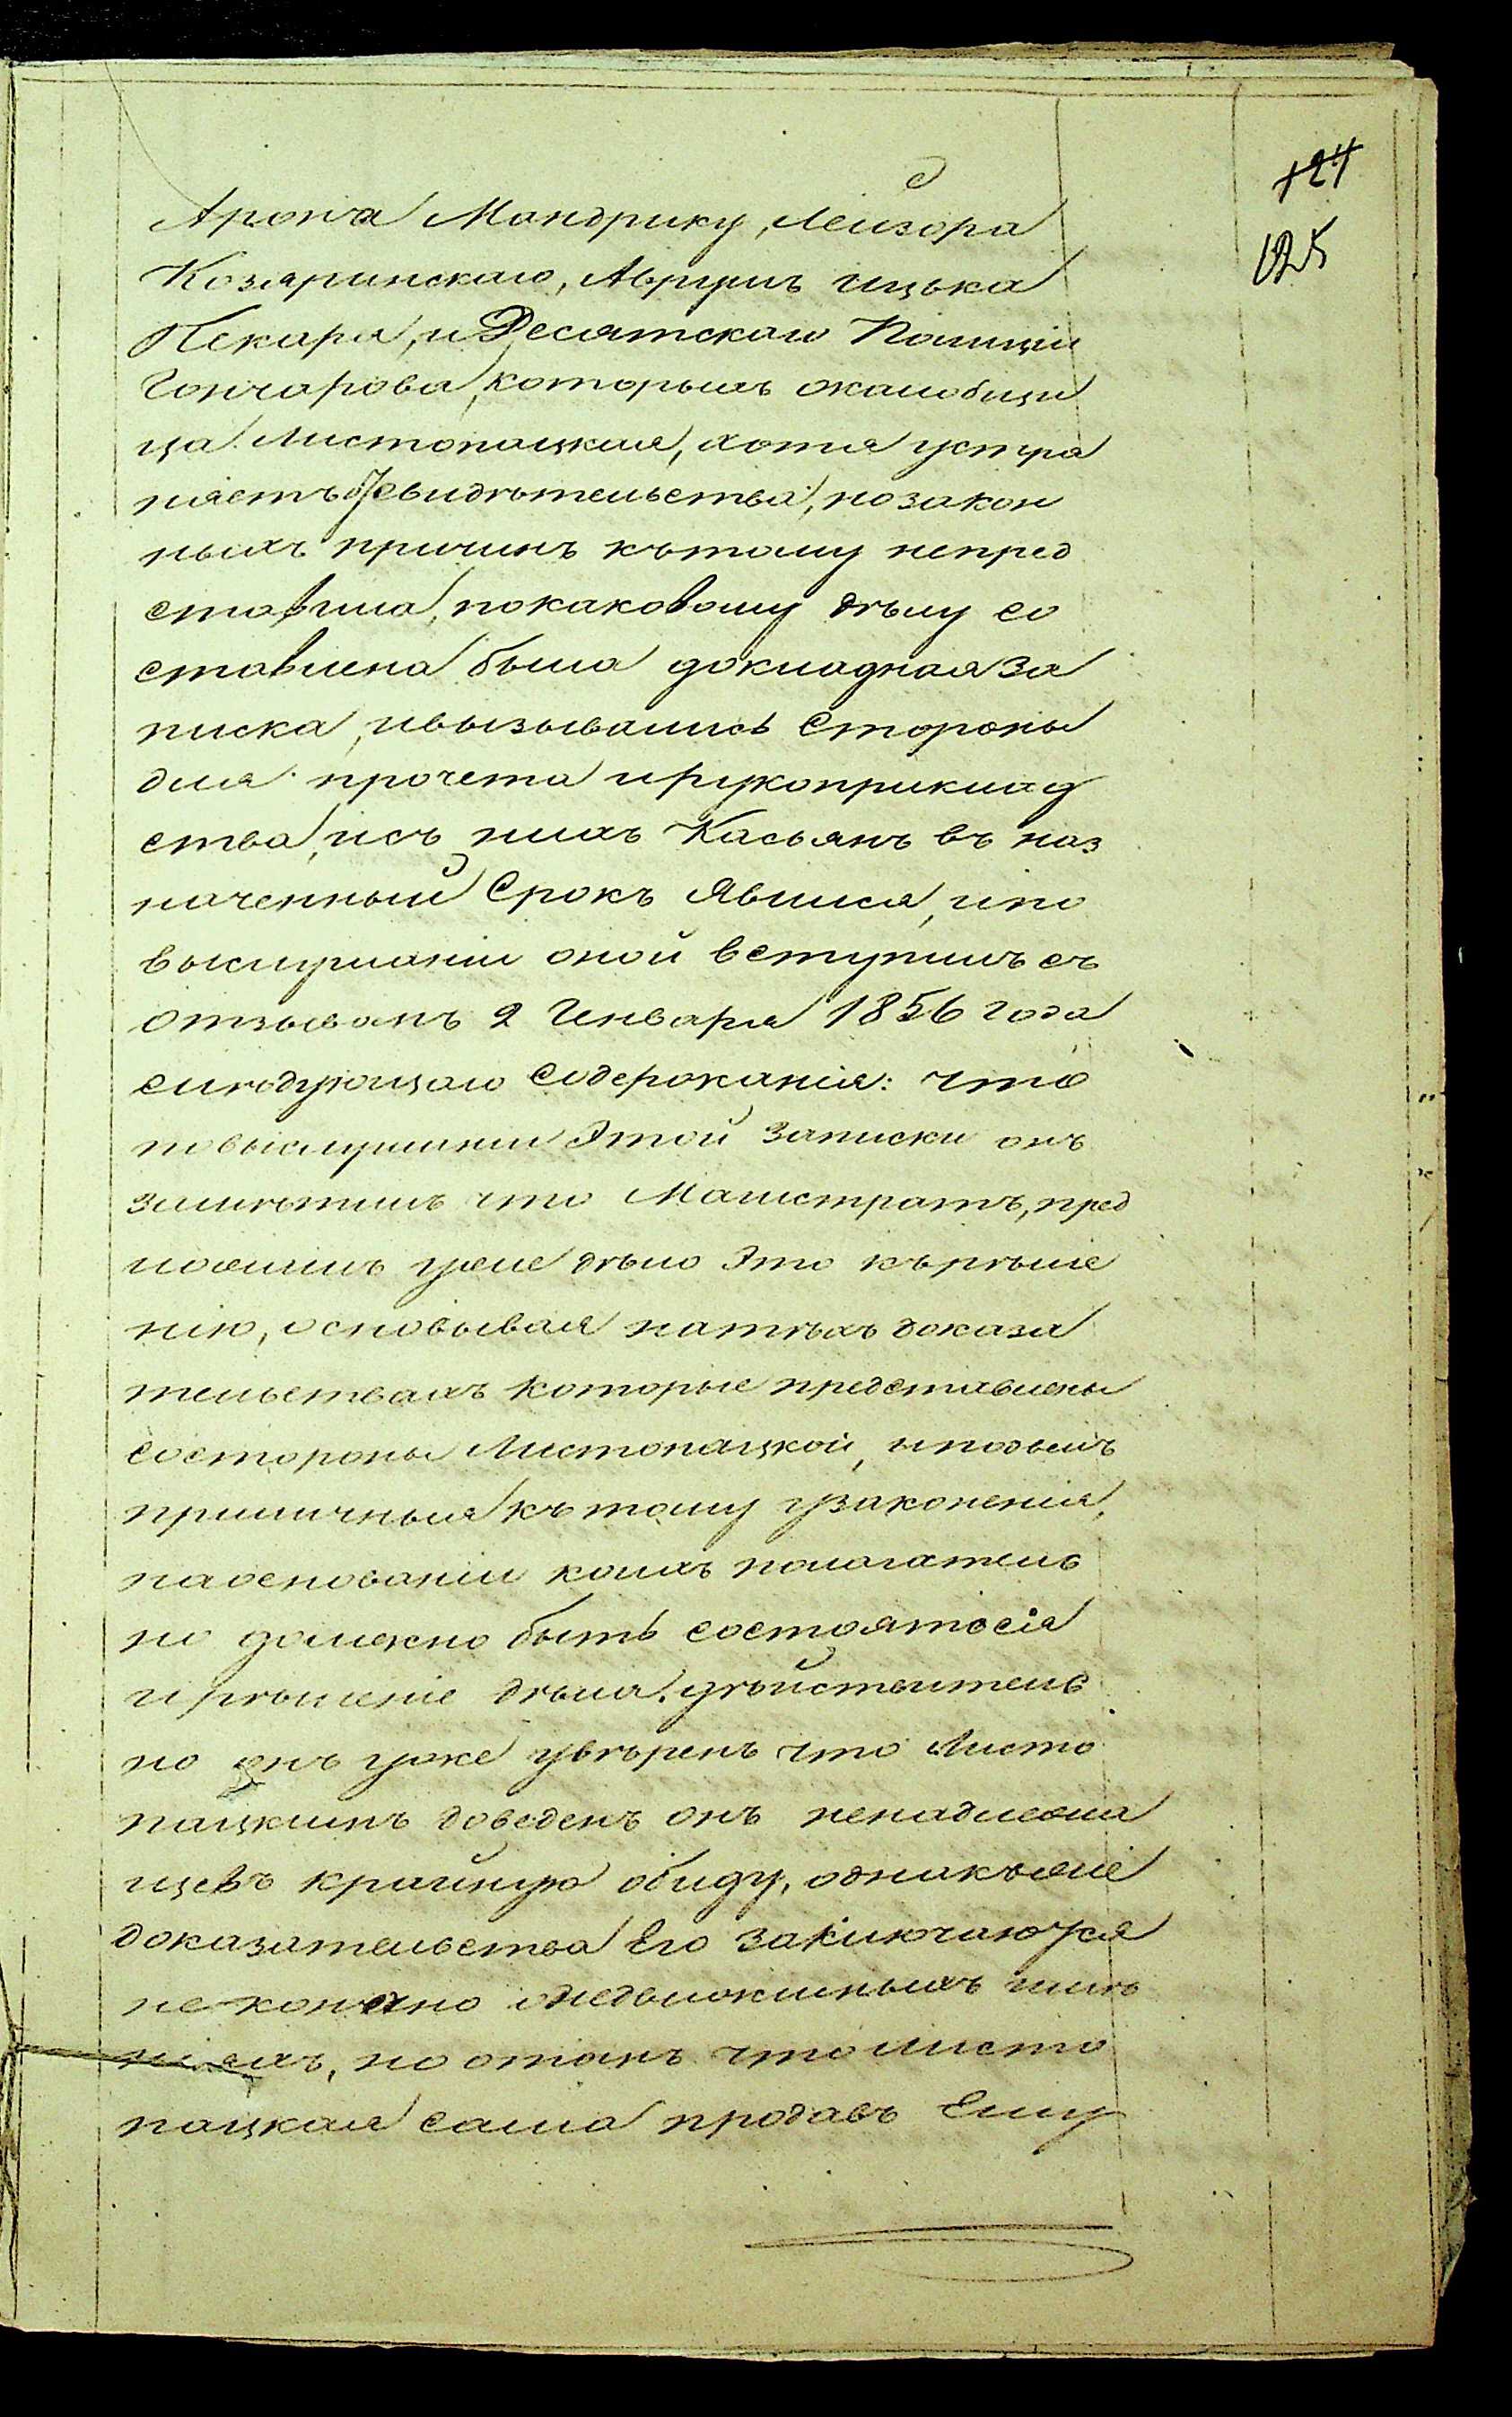 124
125
Арона Мандрику, Лейзора
Козяринскаго, Аврумъ ицька
Пекаря, и Десятскаго Полиціи
Гончарова, которыхъ ожалобщи
ца Листопацкая, хотя устра
няетъ Свидѣтельства, но закон
ныхъ причинъ кътому непред
ставила, покаковому дѣлу со
ставлена была докладная за
писка, ивызывались Стороны
для прочета ирукоприклад
ства, исъ нихъ Касьянъ въ наз
наченный Срокъ Явился, ипо
выслушаніи оной вступилъ съ
отзывомъ 2 Генваря 1856 года
слѣдующаго Содержанія: что
повыслушаніи Этой Записки онъ
замѣтилъ что Магистратъ, пред
положилъ уже дѣло Это кърѣше
нію, основывая натѣхъ доказа
тельствахъ которые представлены
состороны Листопацкой, иподвелъ
приличныя къ тому узаконенія,
наоснованіи коихъ полагатель
но должно быть состоятся
и рѣшеніе дѣла. дѣйствитель
но онъ уже увѣренъ что Листо
пацкимъ доведенъ онъ ненадлежа
щевъ крайную обиду, однакъжіе
доказательства Его заключаются
не конечно въ недвижимыхъ имѣ
ніяхъ, но отомъ что Листо
пацкая сама продавъ Ему